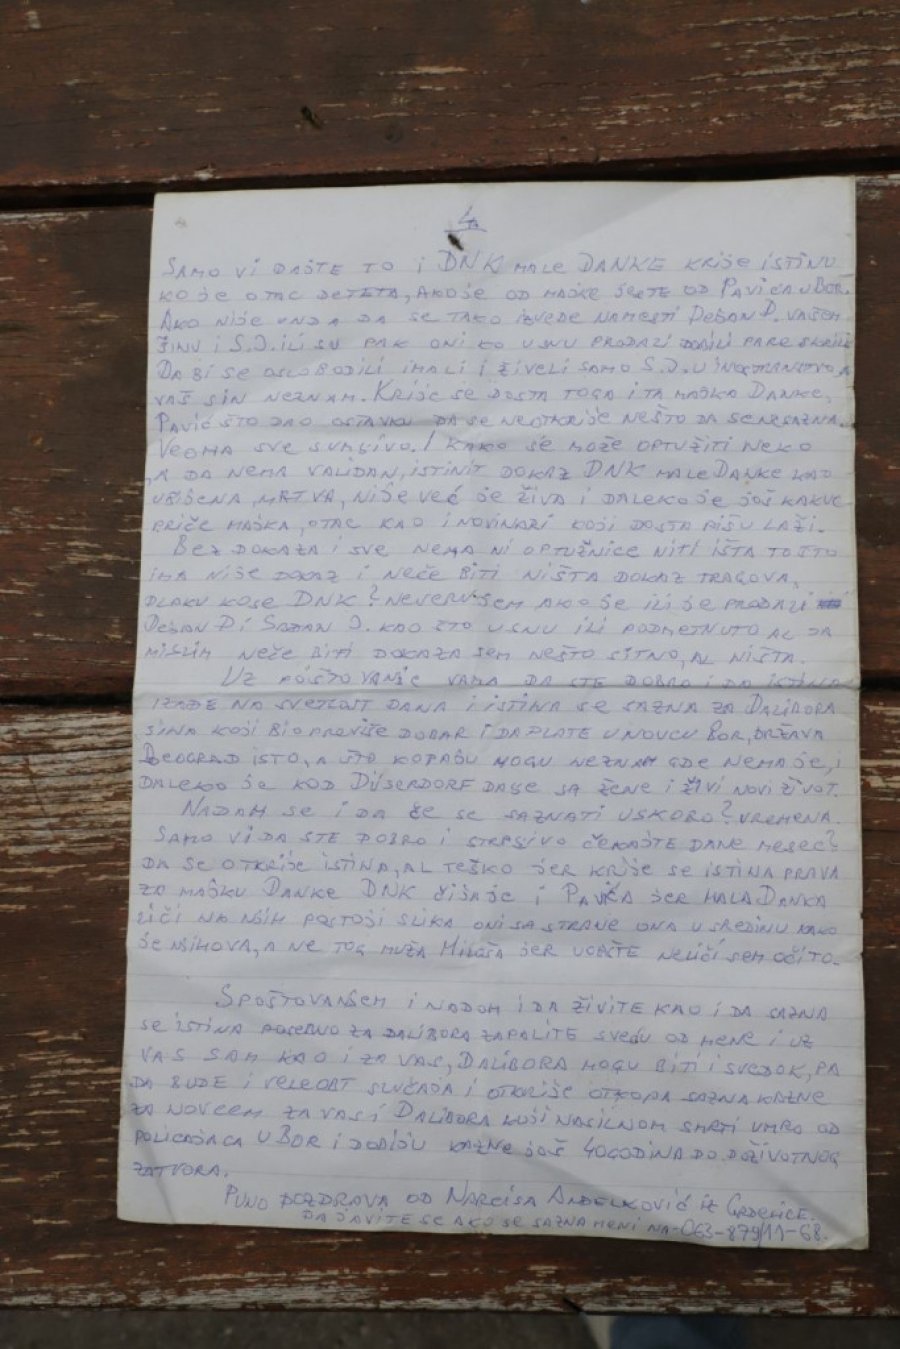 4
SAMO VI DAŠTE TO I DNK MALE DANKE KRIJE ISTINU
KO JE OTAC DETETA, AKO JE OD MAJKE DETE OD PAVIĆA U BOR.
AKO NIJE ONDA DA SE TAKO IZVEDE NAMESTI DEJAN D. VAŠEM
SINU I S.J. ILI SU PAK ONI KO USNU PRODALI DOBILI PARE SKRILI
DA BI SE OSLOBODILI IMALI I ŽIVELI SAMO S.J. U INOSTRANSTVO A
VAŠ SIN NEZNAM. KRIJE SE DOSTA TOGA I TA MAJKA DANKE,
PAVIĆ ŠTO DAO OSTAVKU DA SE NEOTKRIJE NEŠTO DA SE NESAZNA.
VEOMA SVE SUMJIVO. I KAKO SE MOŽE OPTUŽITI NEKO
A DA NEMA VALIDAN, ISTINIT DOKAZ DNK MALE DANKE KAO
UBIJENA, MRTVA, NIJE VEĆ JE ŽIVA I DALEKO JE JOŠ KAKVE
PRIČE MAJKA, OTAC KAO I NOVINARI KOJI DOSTA PIŠU LAŽI.
BEZ DOKAZA I SVE NEMA NI OPTUŽNICE NITI IŠTA TO ŠTO
IMA NIJE DOKAZ I NEČE BITI NIŠTA DOKAZ TRAGOVA,
DLAKU KOSE DNK? NEVERUJEM AKO JE ILI JE PRODALI
DEJAN D I SRĐAN J. KAO ŠTO USNU ILI PODMETNUTO AL DA
MISLIM NEČE BITI DOKAZA SEM NEŠTO SITNO, AL NIŠTA.
UZ POŠTOVANJE VAMA DA STE DOBRO I DA ISTINA
IZAĐE NA SVETLOST DANA I ISTINA SE SAZNA ZA DALIBORA
SINA KOJI BIO PREVIŠE DOBAR I DA PLATE U NOVCU BOR, DRŽAVA
BEOGRAD ISTO, A ŠTO KOPAJU MOGU NEZNAM GDE NEMA JE, I
DALEKO JE KOD DISERDORF DALJE SA ŽENE I ŽIVI NOVI ŽIVOT.
NADAM SE I DA ČE SE SAZNATI USKORO? VREMENA.
SAMO VI DA STE DOBRO I STRPJIVO ČEKAJTE DANE MESEC?
DA SE OTKRIJE ISTINA, AL TEŠKO JER KRIJE SE ISTINA PRAVA
ZA MAJKU DANKE DNK ČIJA JE I PAVIĆA JER MALA DANKA
LIČI NA NJIH POSTOJI SLIKA ONI SA STRANE ONA U SREDINU KAKO
JE NJIHOVA, A NE TOG MUŽA MILOŠA JER UOPŠTE NELIČI SEM OČITO.
SPOŠTOVANJEM I NADOM I DA ŽIVITE KAO I DA SAZNA
SE ISTINA POSEBNO ZA DALIBORA ZAPALITE SVEĆU OD MENE I UZ
VAS SAM KAO I ZA VAS, DALIBORA MOGU BITI I SVEDOK, PA
DA BUDE I VELEOBT SLUČAJA I OTKRIJE OTKOPA SAZNA KAZNE
ZA NOVCEM ZA VAS I DALIBORA KOJI NASILNOM SMRTI UMRO OD
POLICAJACA U BOR I DOBIJU KAZNE JOŠ 40 GODINA DO DOŽIVOTNOG
ZATVORA.
PUNO POZDRAVA OD NARCISA ANĐELKOVIĆ IZ GRDELICE.
DA JAVITE SE AKO SE SAZNA MENI NA-063-879/11-68.